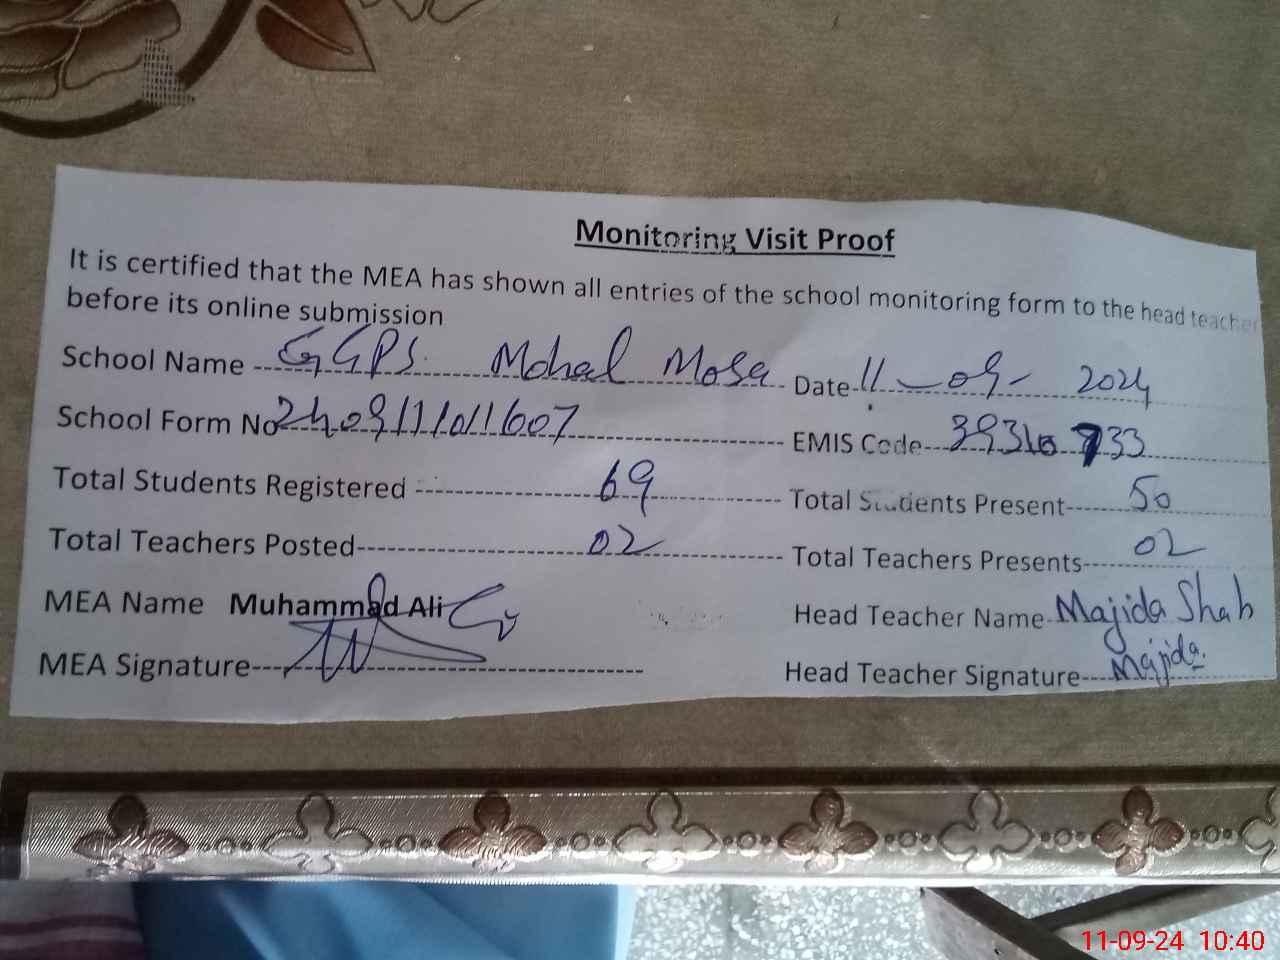 Monitoring Visit Proof
It is certified that the MEA has shown all entries of the school monitoring form to the head teacher
before its online submission
School Name GGPS. Mohal Mosa Date 11-09-2024
School Form No 2409111011607 EMIS Code 39310733
Total Students Registered 69 Total Students Present 50
Total Teachers Posted 02 Total Teachers Presents 02
MEA Name Muhammad Ali Head Teacher Name Majida Shah
MEA Signature Head Teacher Signature Majida.
11-09-24 10:40